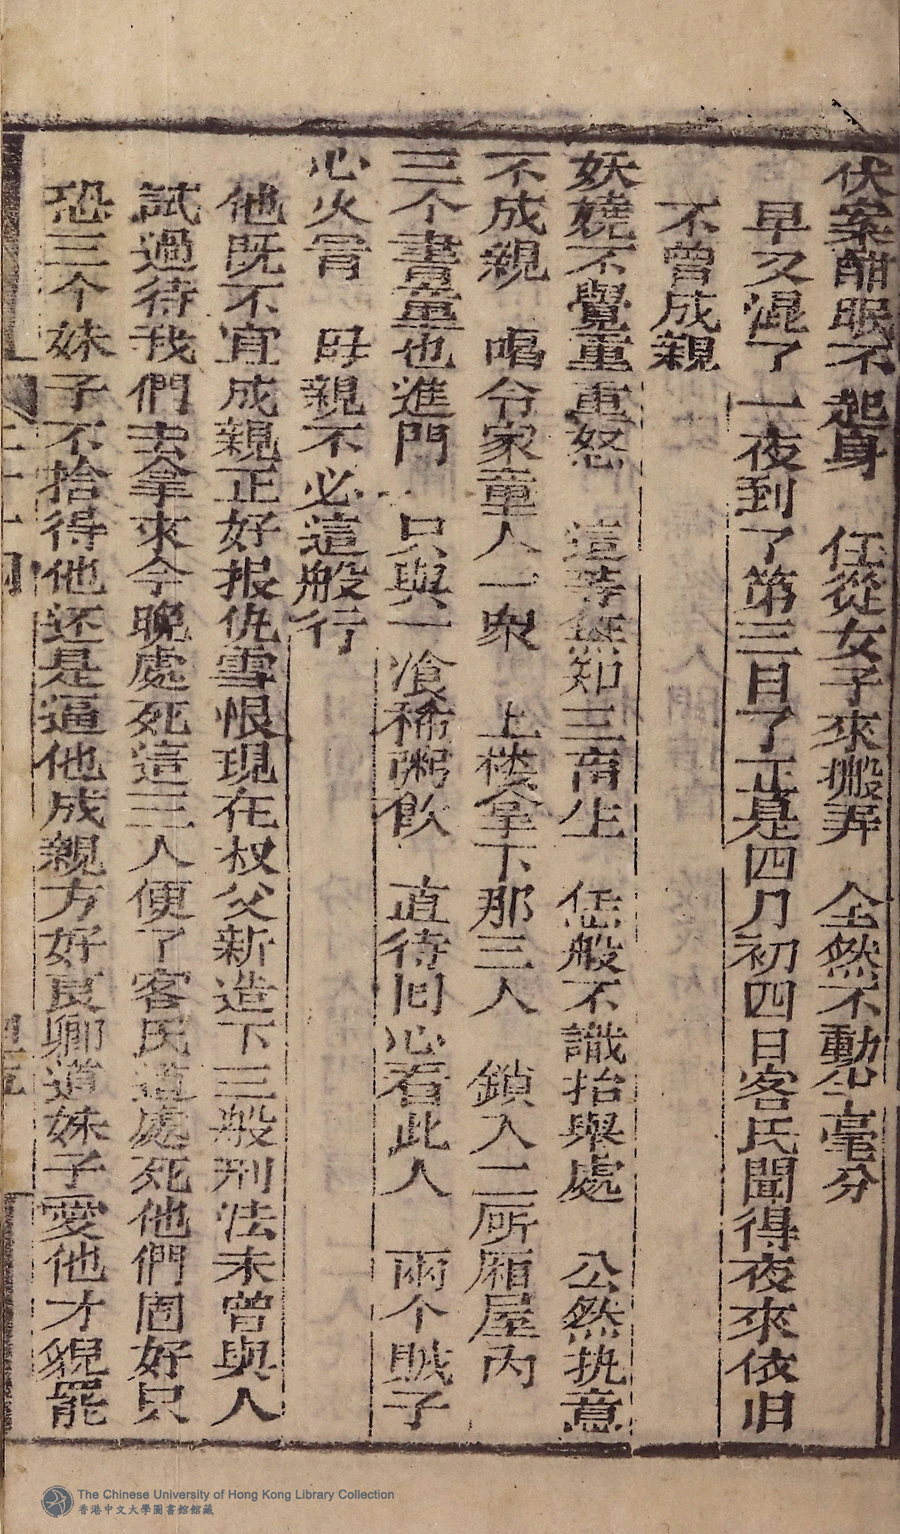 伏案酣眠不起身　任從女子來搬弄　全然不動半毫分
早又混了一夜到了第三日了正是四月初四日客氏聞得夜來依旧
不曾成親
妖嬈不覺重重怒　這等無知三畜生　恁般不識抬舉處　公然执意
不成親　喝令家童人一衆　上樓拿下那三人　鎖入二厛廂屋內
三个書童也進門　只與一飡稀粥飲　直待囘心看此人　兩个賊子
心火冐　母親不必這般行
他既不宜成親正好报仇雪恨現在叔父新造下三般刑法未曾與人
試過待我們去拿來今晚處死這三人便了客氏道處死他們固好只
恐三个妹子不捨得他还是逼他成親方好良卿道妹子愛他才貌罷
二十一囘
The Chinese University of Hong Kong Library Collection
香港中文大學圖書館館藏